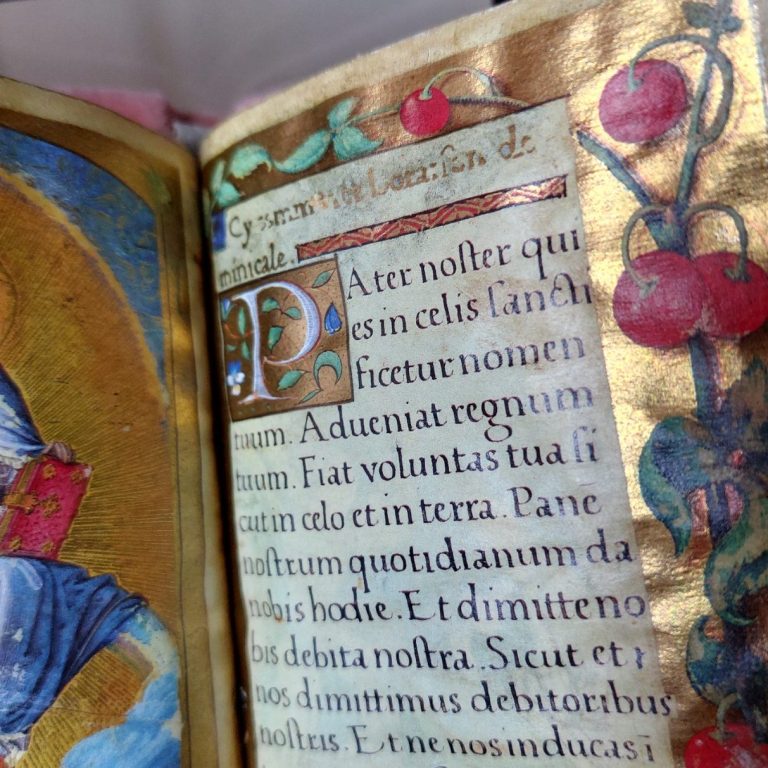 minicale.
PAter noſter qui
es in celis ſancti
ficetur nomen
tuum. Adueniat regnum
tuum. Fiat voluntas tua ſi
cut in celo et in terra. Panē
noſtrum quotidianum da
nobis hodie. Et dimitte no
bis debita noſtra. Sicut et
nos dimittimus debitoribus
noſtris. Et ne nos inducas ī